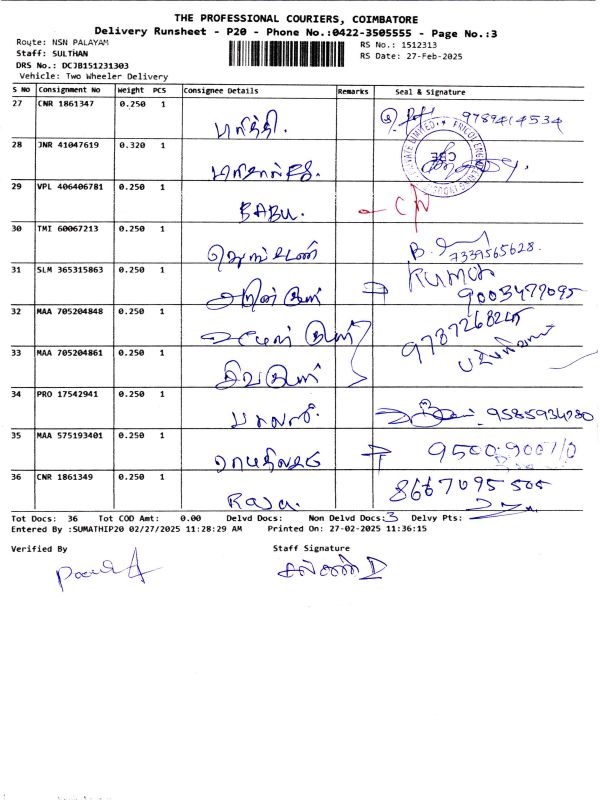 THE PROFESSIONAL COURIERS, COIMBATORE
Delivery Runsheet - P20 - Phone No.:0422-3505555 - Page No.:3
Route: NSN PALAYAM
Staff: SULTHAN
DRS No.: DCJB151231303
Vehicle: Two Wheeler Delivery
RS No.: 1512313
RS Date: 27-Feb-2025
S NO Consignment No Weight PCS Consignee Details Remarks Seal & Signature
27 CNR 1861347 0.250 1 பாரத்தி. 9789414534
28 JNR 41047619 0.320 1
29 VPL 406406781 0.250 1 BABU.
30 TMI 60067213 0.250 1 B. 7339565628.
31 SLM 365315863 0.250 1 அரின் குமார் Kumar 9003477095
32 MAA 705204848 0.250 1 9787268245
33 MAA 705204861 0.250 1 சிவகுமார்
34 PRO 17542941 0.250 1 பாலாஜி. 9585934780
35 MAA 575193401 0.250 1 9500900710
36 CNR 1861349 0.250 1 Raja. 8667095505
Tot Docs: 36 Tot COD Amt: 0.00 Delvd Docs: Non Delvd Docs:3 Delvy Pts:
Entered By :SUMATHIP20 02/27/2025 11:28:29 AM Printed On: 27-02-2025 11:36:15
Verified By Staff Signature